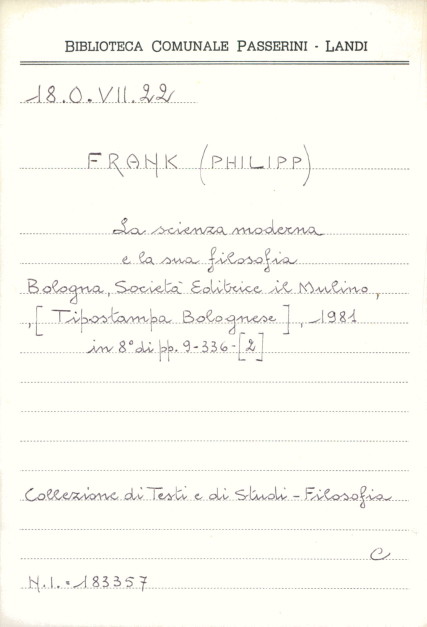 BIBLIOTECA COMUNALE PASSERINI - LANDI
18.O.VII.22
FRANK (PHILIPP)
La scienza moderna
e la sua filosofia
Bologna, Società Editrice il Mulino,
,[Tipostampa Bolognese], 1981
in 8° di pp. 9-336-[2]
Collezione di Testi e di Studi - Filosofia
C
N.I. = 183357